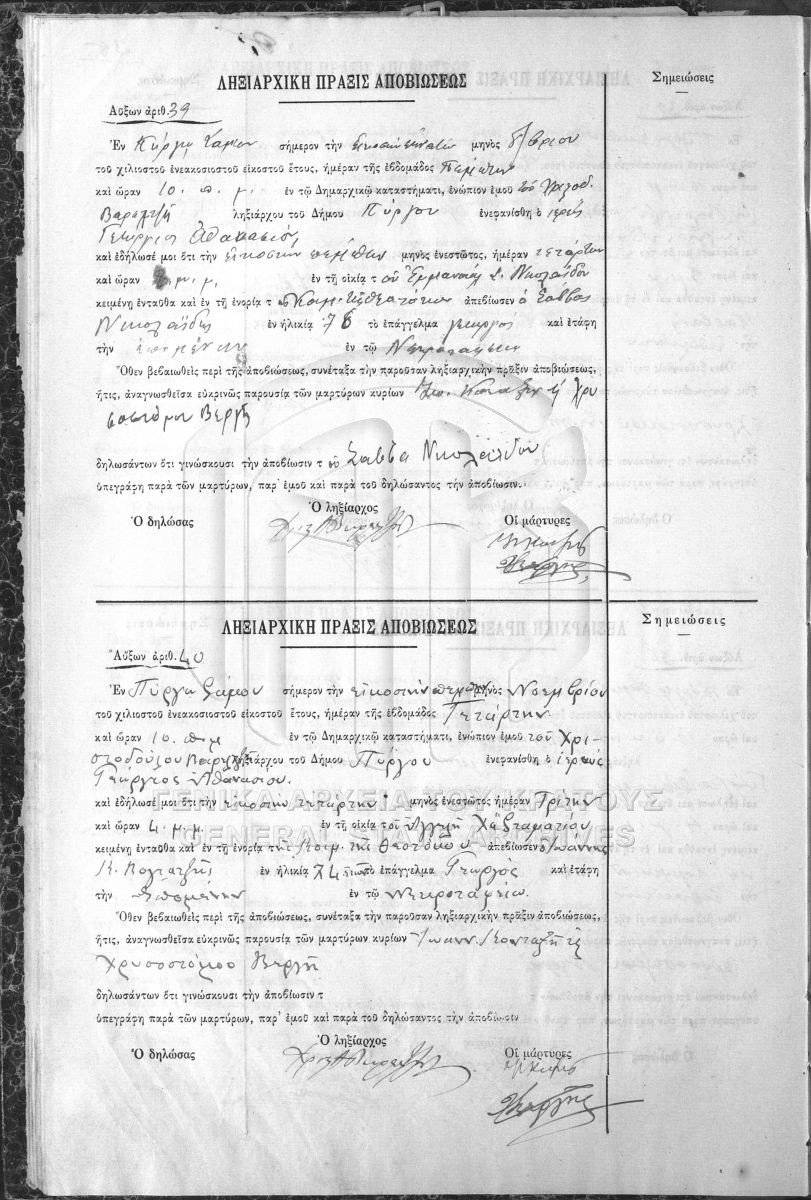 ΛΗΞΙΑΡΧΙΚΗ ΠΡΑΞΙΣ ΑΠΟΒΙΩΣΕΩΣ
Σημειώσεις
Αὔξων ἀριθ. 39
Ἐν Πύργῳ Σάμου σήμερον τὴν μηνὸς
τοῦ χιλιοστοῦ ἐνεακοσιοστοῦ εἰκοστοῦ ἔτους, ἡμέραν τῆς ἑβδομάδος Πέμπτην
καὶ ὥραν 10. π. μ. ἐν τῷ Δημαρχικῷ καταστήματι, ἐνώπιον ἐμοῦ τοῦ
ληξιάρχου τοῦ Δήμου Πύργου ἐνεφανίσθη ὁ ἱερεὺς
Γεώργιος Ἀθανασίου
καὶ ἐδήλωσέ μοι ὅτι τὴν εἰκοστὴν πέμπτην μηνὸς ἐνεστῶτος, ἡμέραν τετάρτην
καὶ ὥραν μ. μ. ἐν τῇ οἰκίᾳ τοῦ Ἐμμανουὴλ Σ. Νικολαΐδου
κειμένῃ ἐνταῦθα καὶ ἐν τῇ ἐνορίᾳ τῆς Κοιμ. τῆς Θεοτόκου ἀπεβίωσεν ὁ Σάββας
Νικολαΐδης ἐν ἡλικίᾳ 78 τὸ ἐπάγγελμα γεωργὸς καὶ ἐτάφη
τὴν ἑπομένην ἐν τῷ Νεκροταφείῳ
Ὅθεν βεβαιωθεὶς περὶ τῆς ἀποβιώσεως, συνέταξα τὴν παροῦσαν ληξιαρχικὴν πρᾶξιν ἀποβιώσεως,
ἥτις, ἀναγνωσθεῖσα εὐκρινῶς παρουσίᾳ τῶν μαρτύρων κυρίων Ἰω. Κονταξῆ ἢ Χρυ
σοστόμου Βεργῆ
δηλωσάντων ὅτι γινώσκουσι τὴν ἀποβίωσιν τοῦ Σάββα Νικολαΐδου
ὑπεγράφη παρὰ τῶν μαρτύρων, παρ' ἐμοῦ καὶ παρὰ τοῦ δηλώσαντος τὴν ἀποβίωσιν.
Ὁ ληξίαρχος
Ὁ δηλώσας Οἱ μάρτυρες
ΛΗΞΙΑΡΧΙΚΗ ΠΡΑΞΙΣ ΑΠΟΒΙΩΣΕΩΣ
Σημειώσεις
Αὔξων ἀριθ. 40
Ἐν Πύργῳ Σάμου σήμερον τὴν εἰκοστὴν πέμπτην μηνὸς Νοεμβρίου
τοῦ χιλιοστοῦ ἐνεακοσιοστοῦ εἰκοστοῦ ἔτους, ἡμέραν τῆς ἑβδομάδος Τετάρτην
καὶ ὥραν 10. π μ ἐν τῷ Δημαρχικῷ καταστήματι, ἐνώπιον ἐμοῦ τοῦ Χρι-
στοδούλου ληξιάρχου τοῦ Δήμου Πύργου ἐνεφανίσθη ὁ ἱερεὺς
Γεώργιος Ἀθανασίου.
καὶ ἐδήλωσέ μοι ὅτι τὴν εἰκοστὴν τετάρτην μηνὸς ἐνεστῶτος ἡμέραν Τρίτην
καὶ ὥραν 4. μ μ ἐν τῇ οἰκίᾳ τοῦ Ἀγγελῆ Χ΄΄Σταματίου
κειμένῃ ἐνταῦθα καὶ ἐν τῇ ἐνορίᾳ τῆς Κοιμ. τῆς Θεοτόκου ἀπεβίωσεν ὁ Ἰωάννης
Κ. ἐν ἡλικίᾳ 74 ἐτῶν τὸ ἐπάγγελμα Γεωργὸς καὶ ἐτάφη
τὴν ἑπομένην ἐν τῷ Νεκροταφείῳ.
Ὅθεν βεβαιωθεὶς περὶ τῆς ἀποβιώσεως, συνέταξα τὴν παροῦσαν ληξιαρχικὴν πρᾶξιν ἀποβιώσεως,
ἥτις, ἀναγνωσθεῖσα εὐκρινῶς παρουσίᾳ τῶν μαρτύρων κυρίων Ἰωάνν. Κονταξῆ
Χρυσοστόμου Βεργῆ
δηλωσάντων ὅτι γινώσκουσι τὴν ἀποβίωσιν τ
ὑπεγράφη παρὰ τῶν μαρτύρων, παρ' ἐμοῦ καὶ παρὰ τοῦ δηλώσαντος τὴν ἀποβίωσιν
Ὁ ληξίαρχος
Ὁ δηλώσας Οἱ μάρτυρες
ΓΕΝΙΚΑ ΑΡΧΕΙΑ ΤΟΥ ΚΡΑΤΟΥΣ
GENERAL STATE ARCHIVES